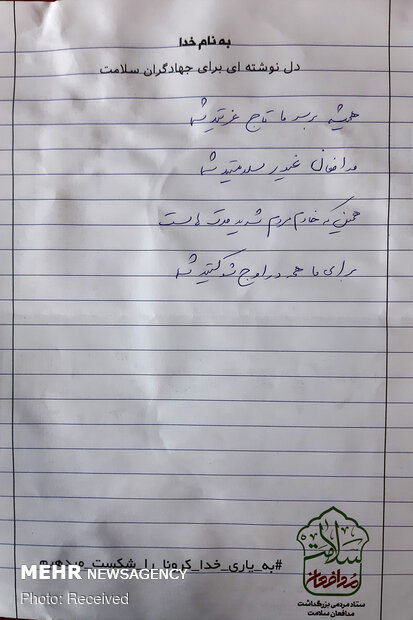 به نام خدا
دل نوشته ای برای جهادگران سلامت
همیشه بر سر ما تاج عزتید شما
مدافعان غیور سلامتید شما
همین که خادم مردم شدید قدرت ماست
برای ما همه در اوج شوکتید شما
سلامت
مدافعان
ستاد مردمی بزرگداشت
مدافعان سلامت
#به_یاری_خدا_کرونا_را_شکست_میدهیم
MEHR NEWSAGENCY
Photo: Received